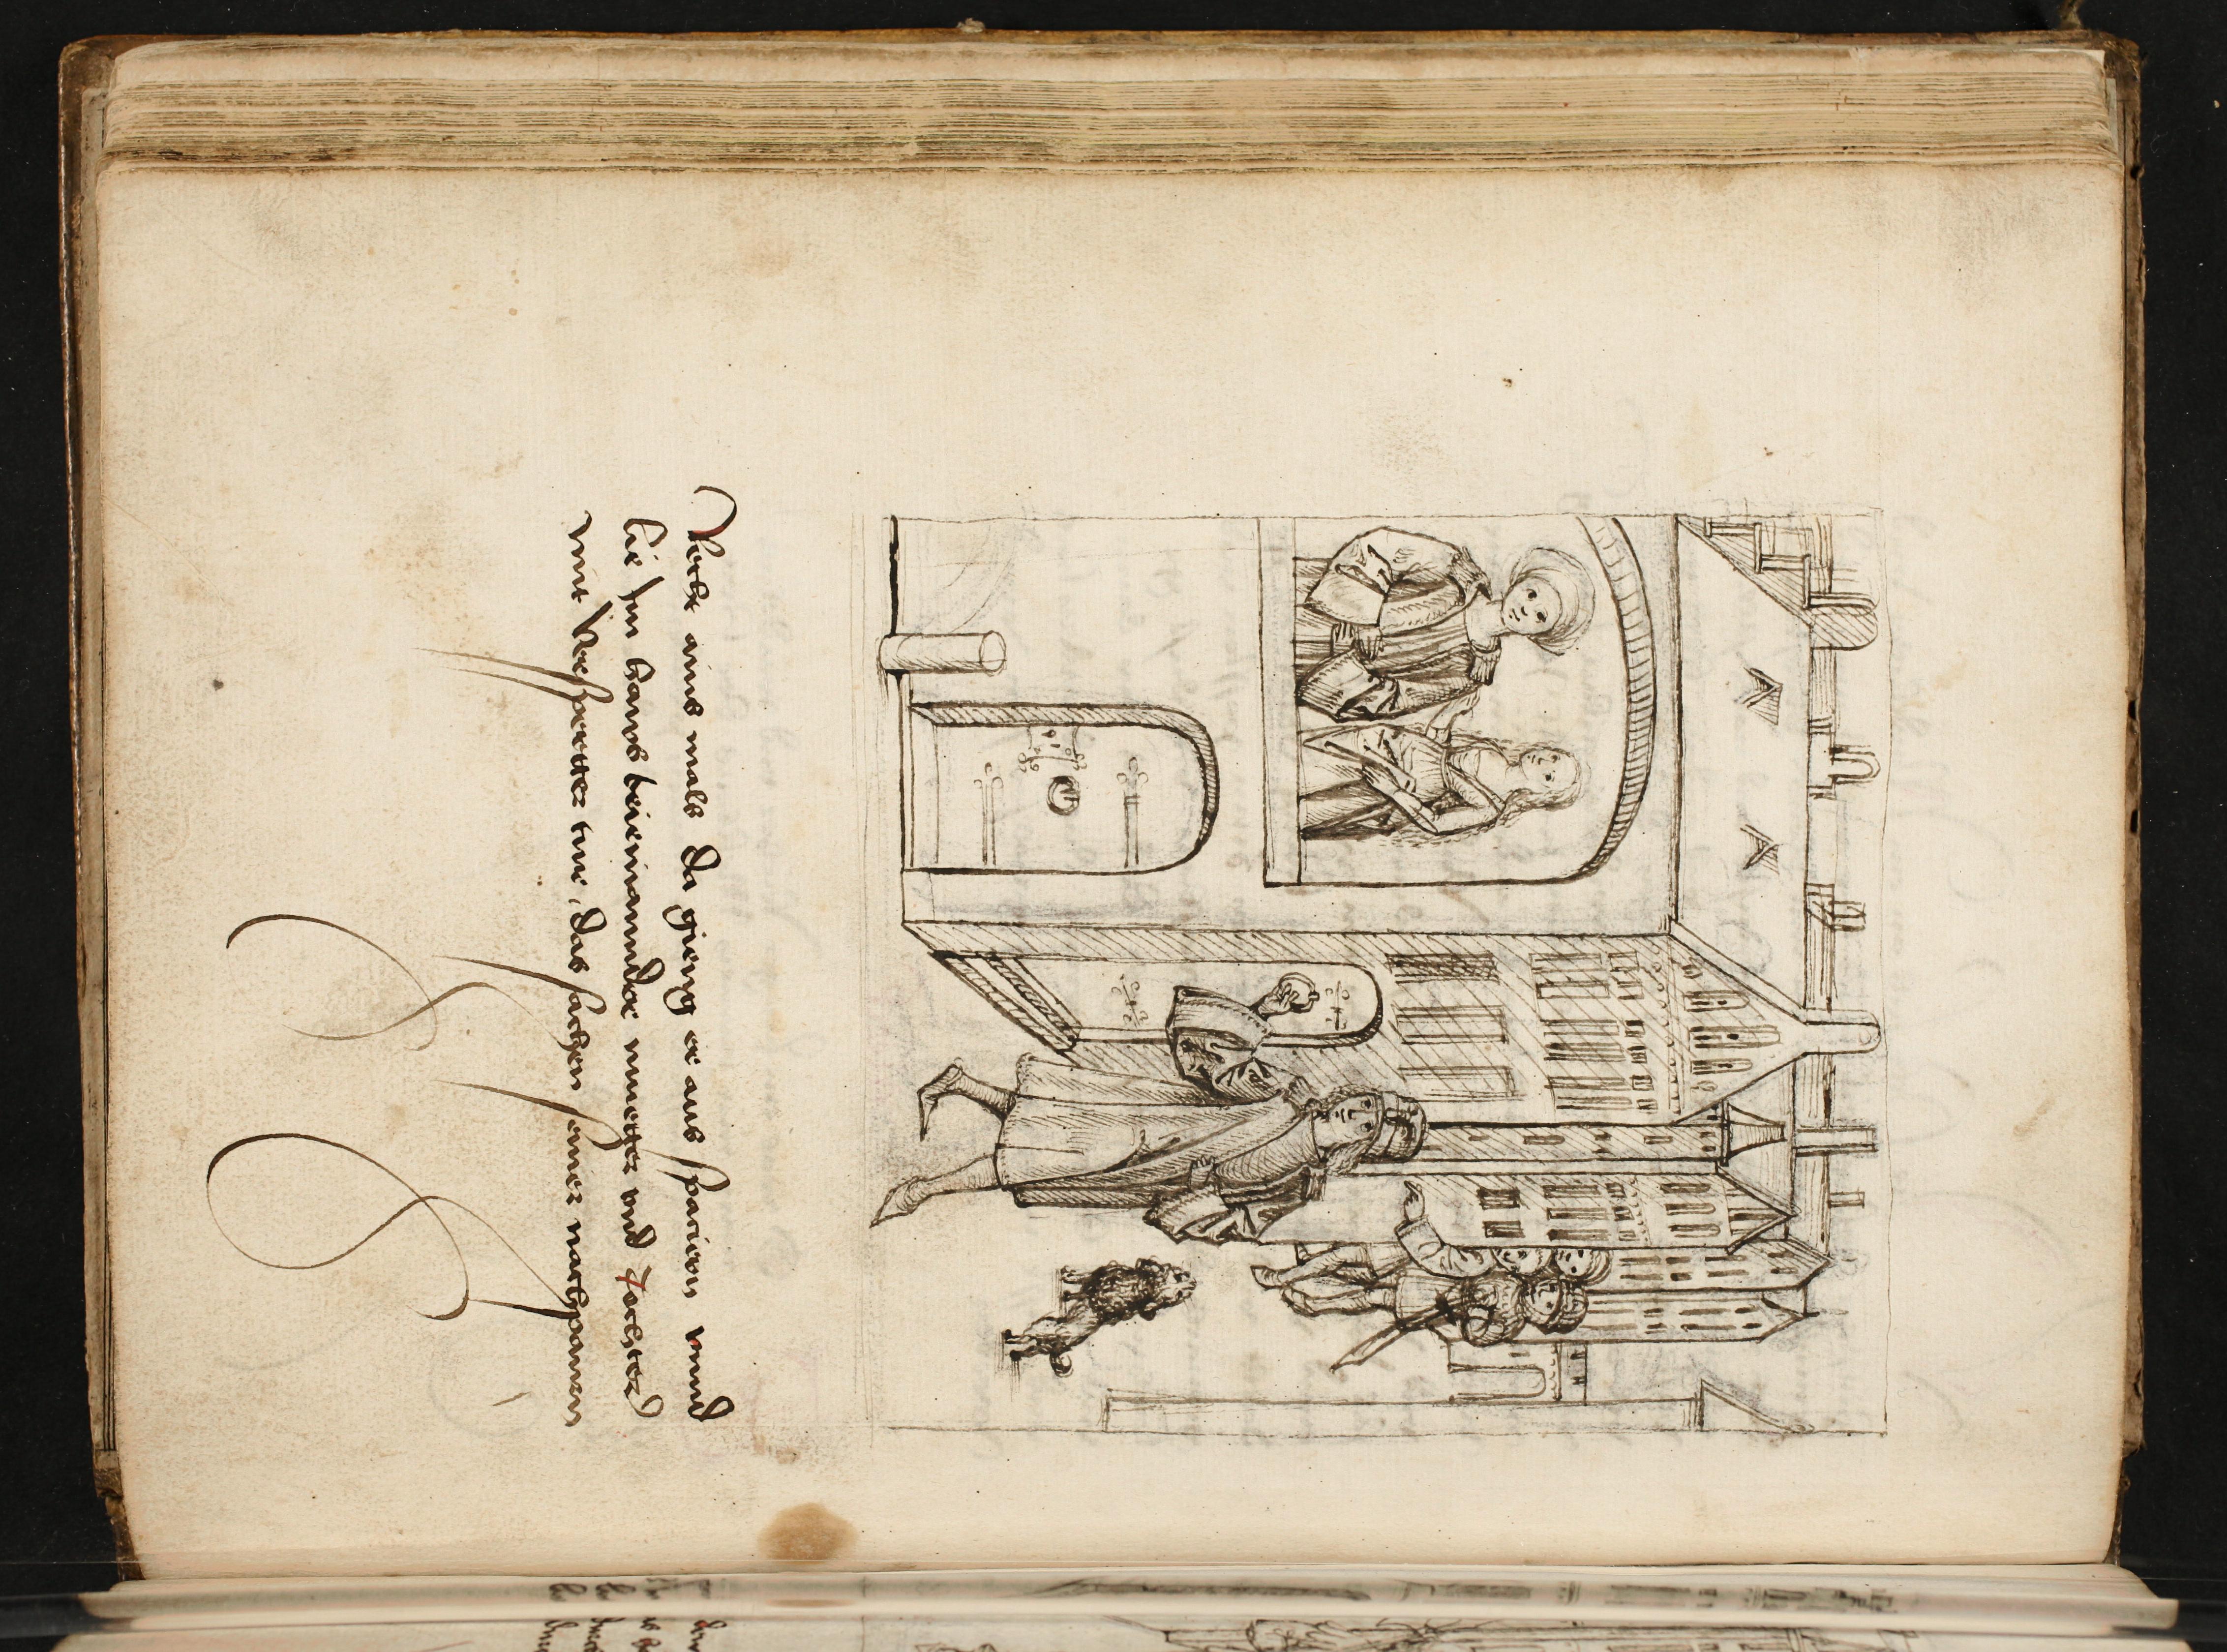 Uecht ains mals da gieng er aus spacirn vnnd
lie Im haws beieinannder mueter vnd tochter
mit versperter tur, das sachen seiner nachpawren